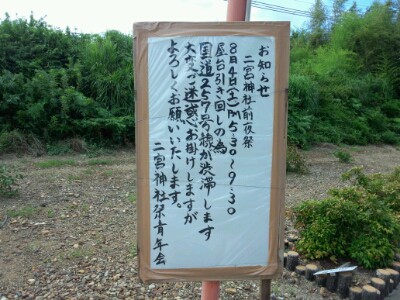 お知らせ
二宮神社前夜祭
8月4日(土)PM5:30〜9:30
屋台引き回しの為
国道257号線が渋滞します
大変ご迷惑お掛けしますが
よろしくお願いいたします。
二宮神社祭青年会